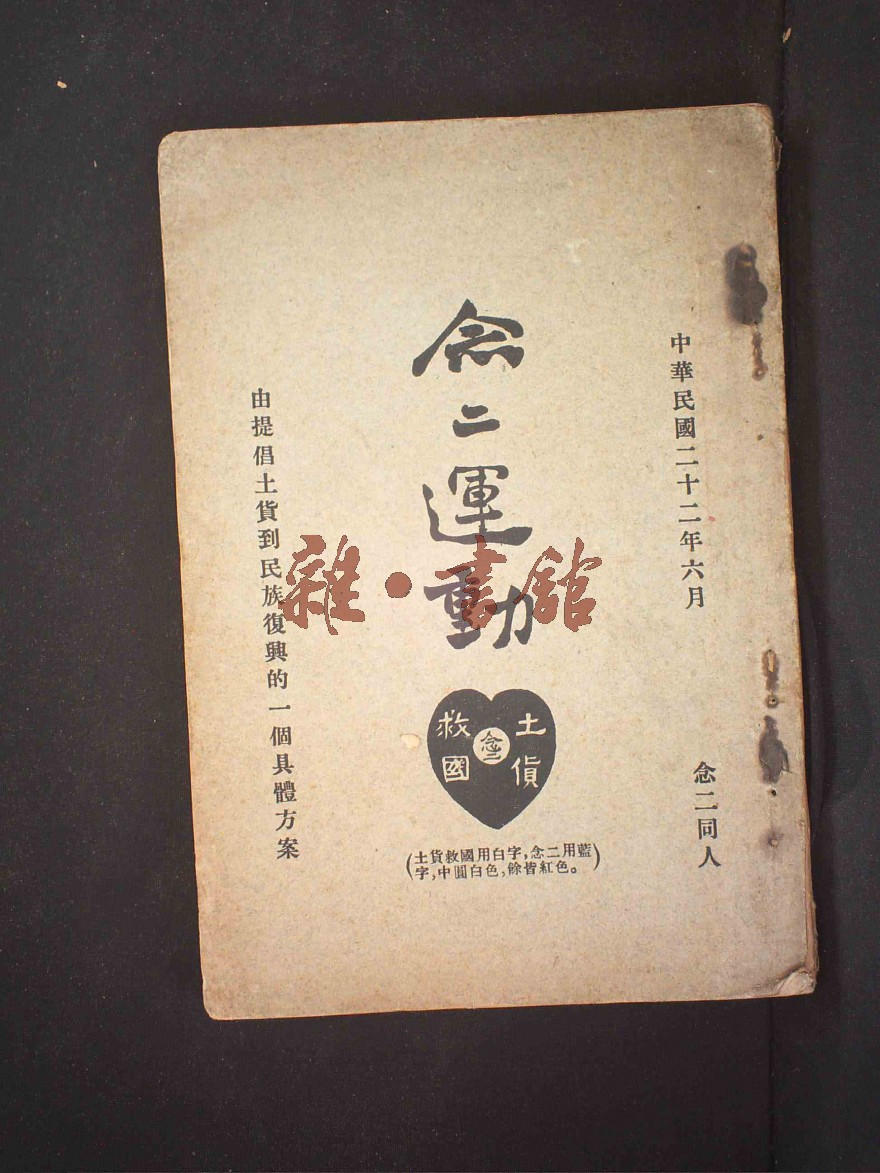 中華民國二十二年六月
念二同人
念二運動
土貨
念二
救國
(土貨救國用白字，念二用藍
字，中圓白色，餘皆紅色。)
由提倡土貨到民族復興的一個具體方案
雜·書館